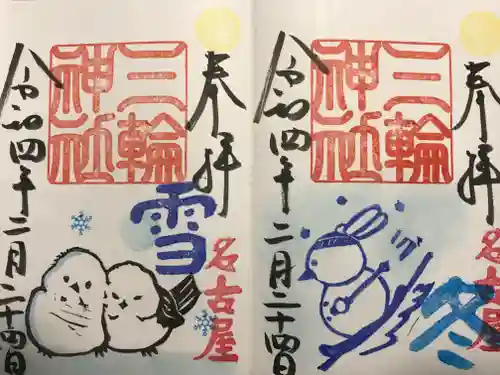 奉拝
三輪
神社
雪
名古屋
令和四年二月二十四日
奉拝
三輪
神社
冬
名古屋
令和四年二月二十四日